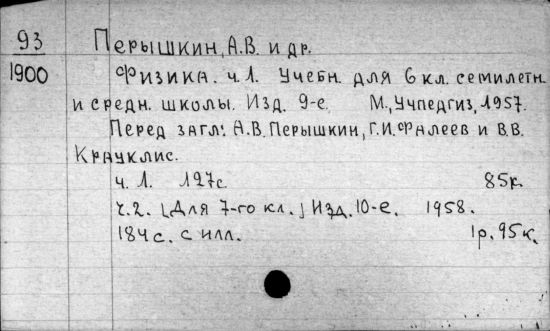 93 Перышкин, А.В. и др.
1900 Физика. ч.1. Учебн. для 6 кл. семилетн.
и средн. школы. Изд. 9-е. М., Учпедгиз, 1957.
Перед загл.: А.В. Перышкин, Г.И. Фалеев и В.В.
Крауклис.
ч. 1. 127с. 85к.
ч.2. [Для 7-го кл.] Изд. 10-е. 1958.
184с. с илл. 1р. 95к.